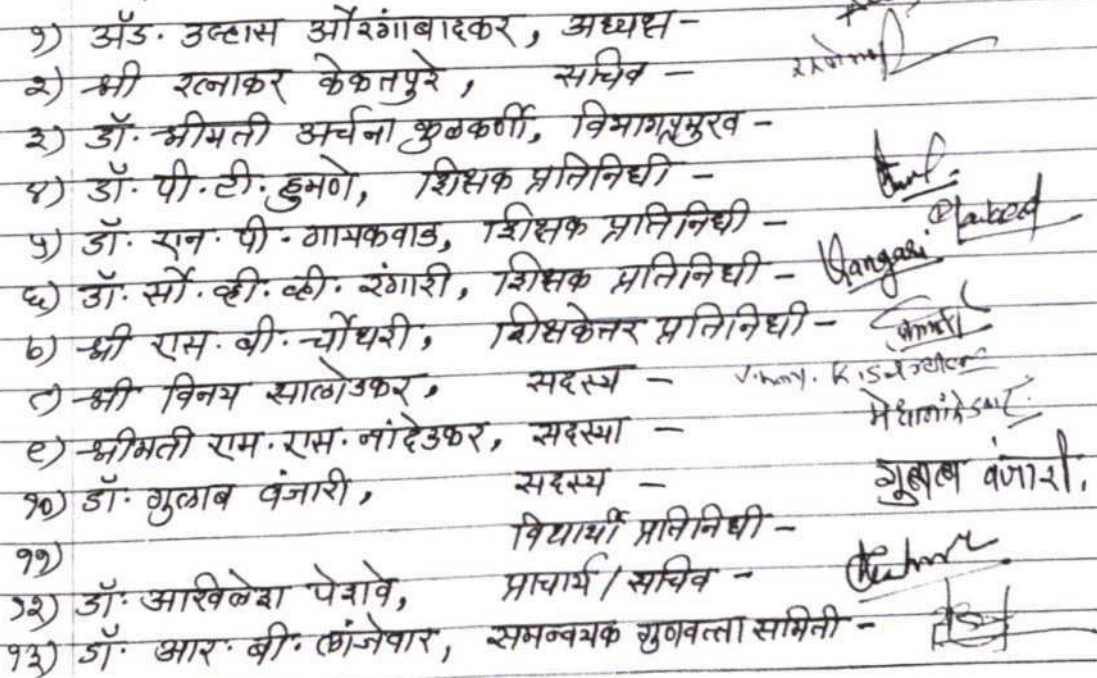 १) अॅड. उल्हास औरंगाबादकर, अध्यक्ष -
२) श्री रत्नाकर केकतपुरे, सचिव -
३) डॉ. श्रीमती अर्चना कुळकर्णी, विभागप्रमुख -
४) डॉ. पी. टी. हुमणे, शिक्षक प्रतिनिधी -
५) डॉ. एन. पी. गायकवाड, शिक्षक प्रतिनिधी -
६) डॉ. सौ. व्ही. व्ही. रंगारी, शिक्षक प्रतिनिधी - Rangari
७) श्री एस. बी. चौधरी, शिक्षकेत्तर प्रतिनिधी -
८) श्री विनय सालोडकर, सदस्य -
९) श्रीमती एम. एस. नांदेडकर, सदस्या -
१०) डॉ. गुलाब वंजारी, सदस्य - गुलाब वंजारी.
११) विद्यार्थी प्रतिनिधी -
१२) डॉ. अखिलेश पेशवे, प्राचार्य / सचिव -
१३) डॉ. आर. बी. लांजेवार, समन्वयक गुणवत्ता समिती -